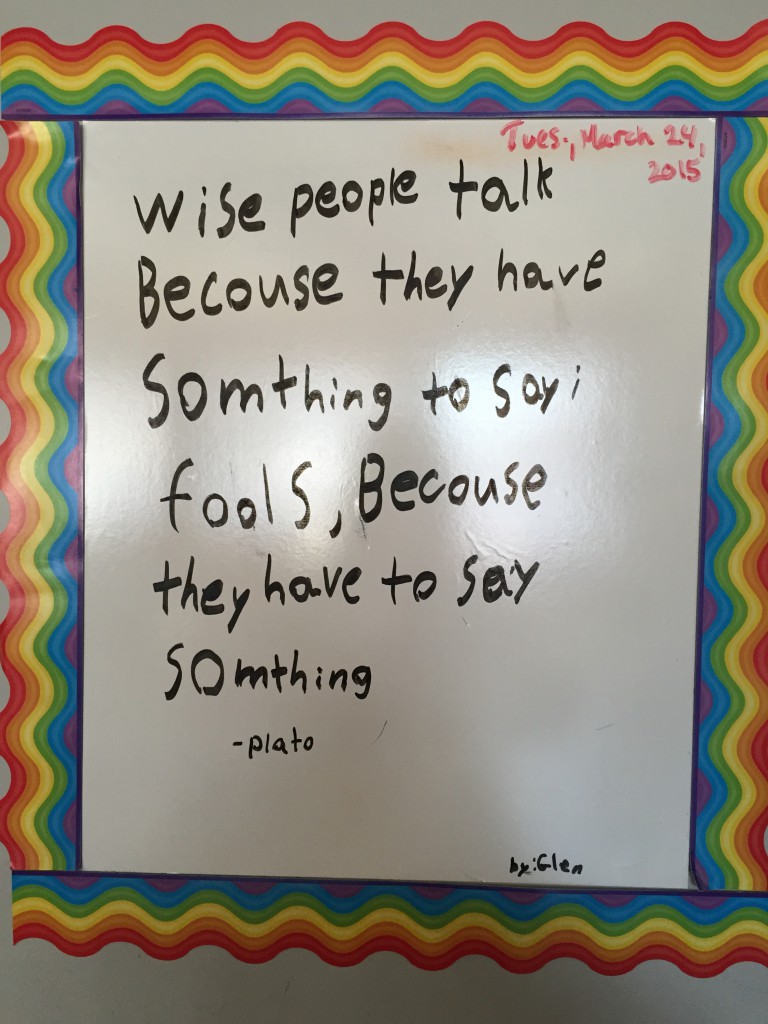 Tues., March 24,
2015
wise people talk
Becouse they have
Somthing to say;
fools, Becouse
they have to say
somthing
-plato
by: Glen